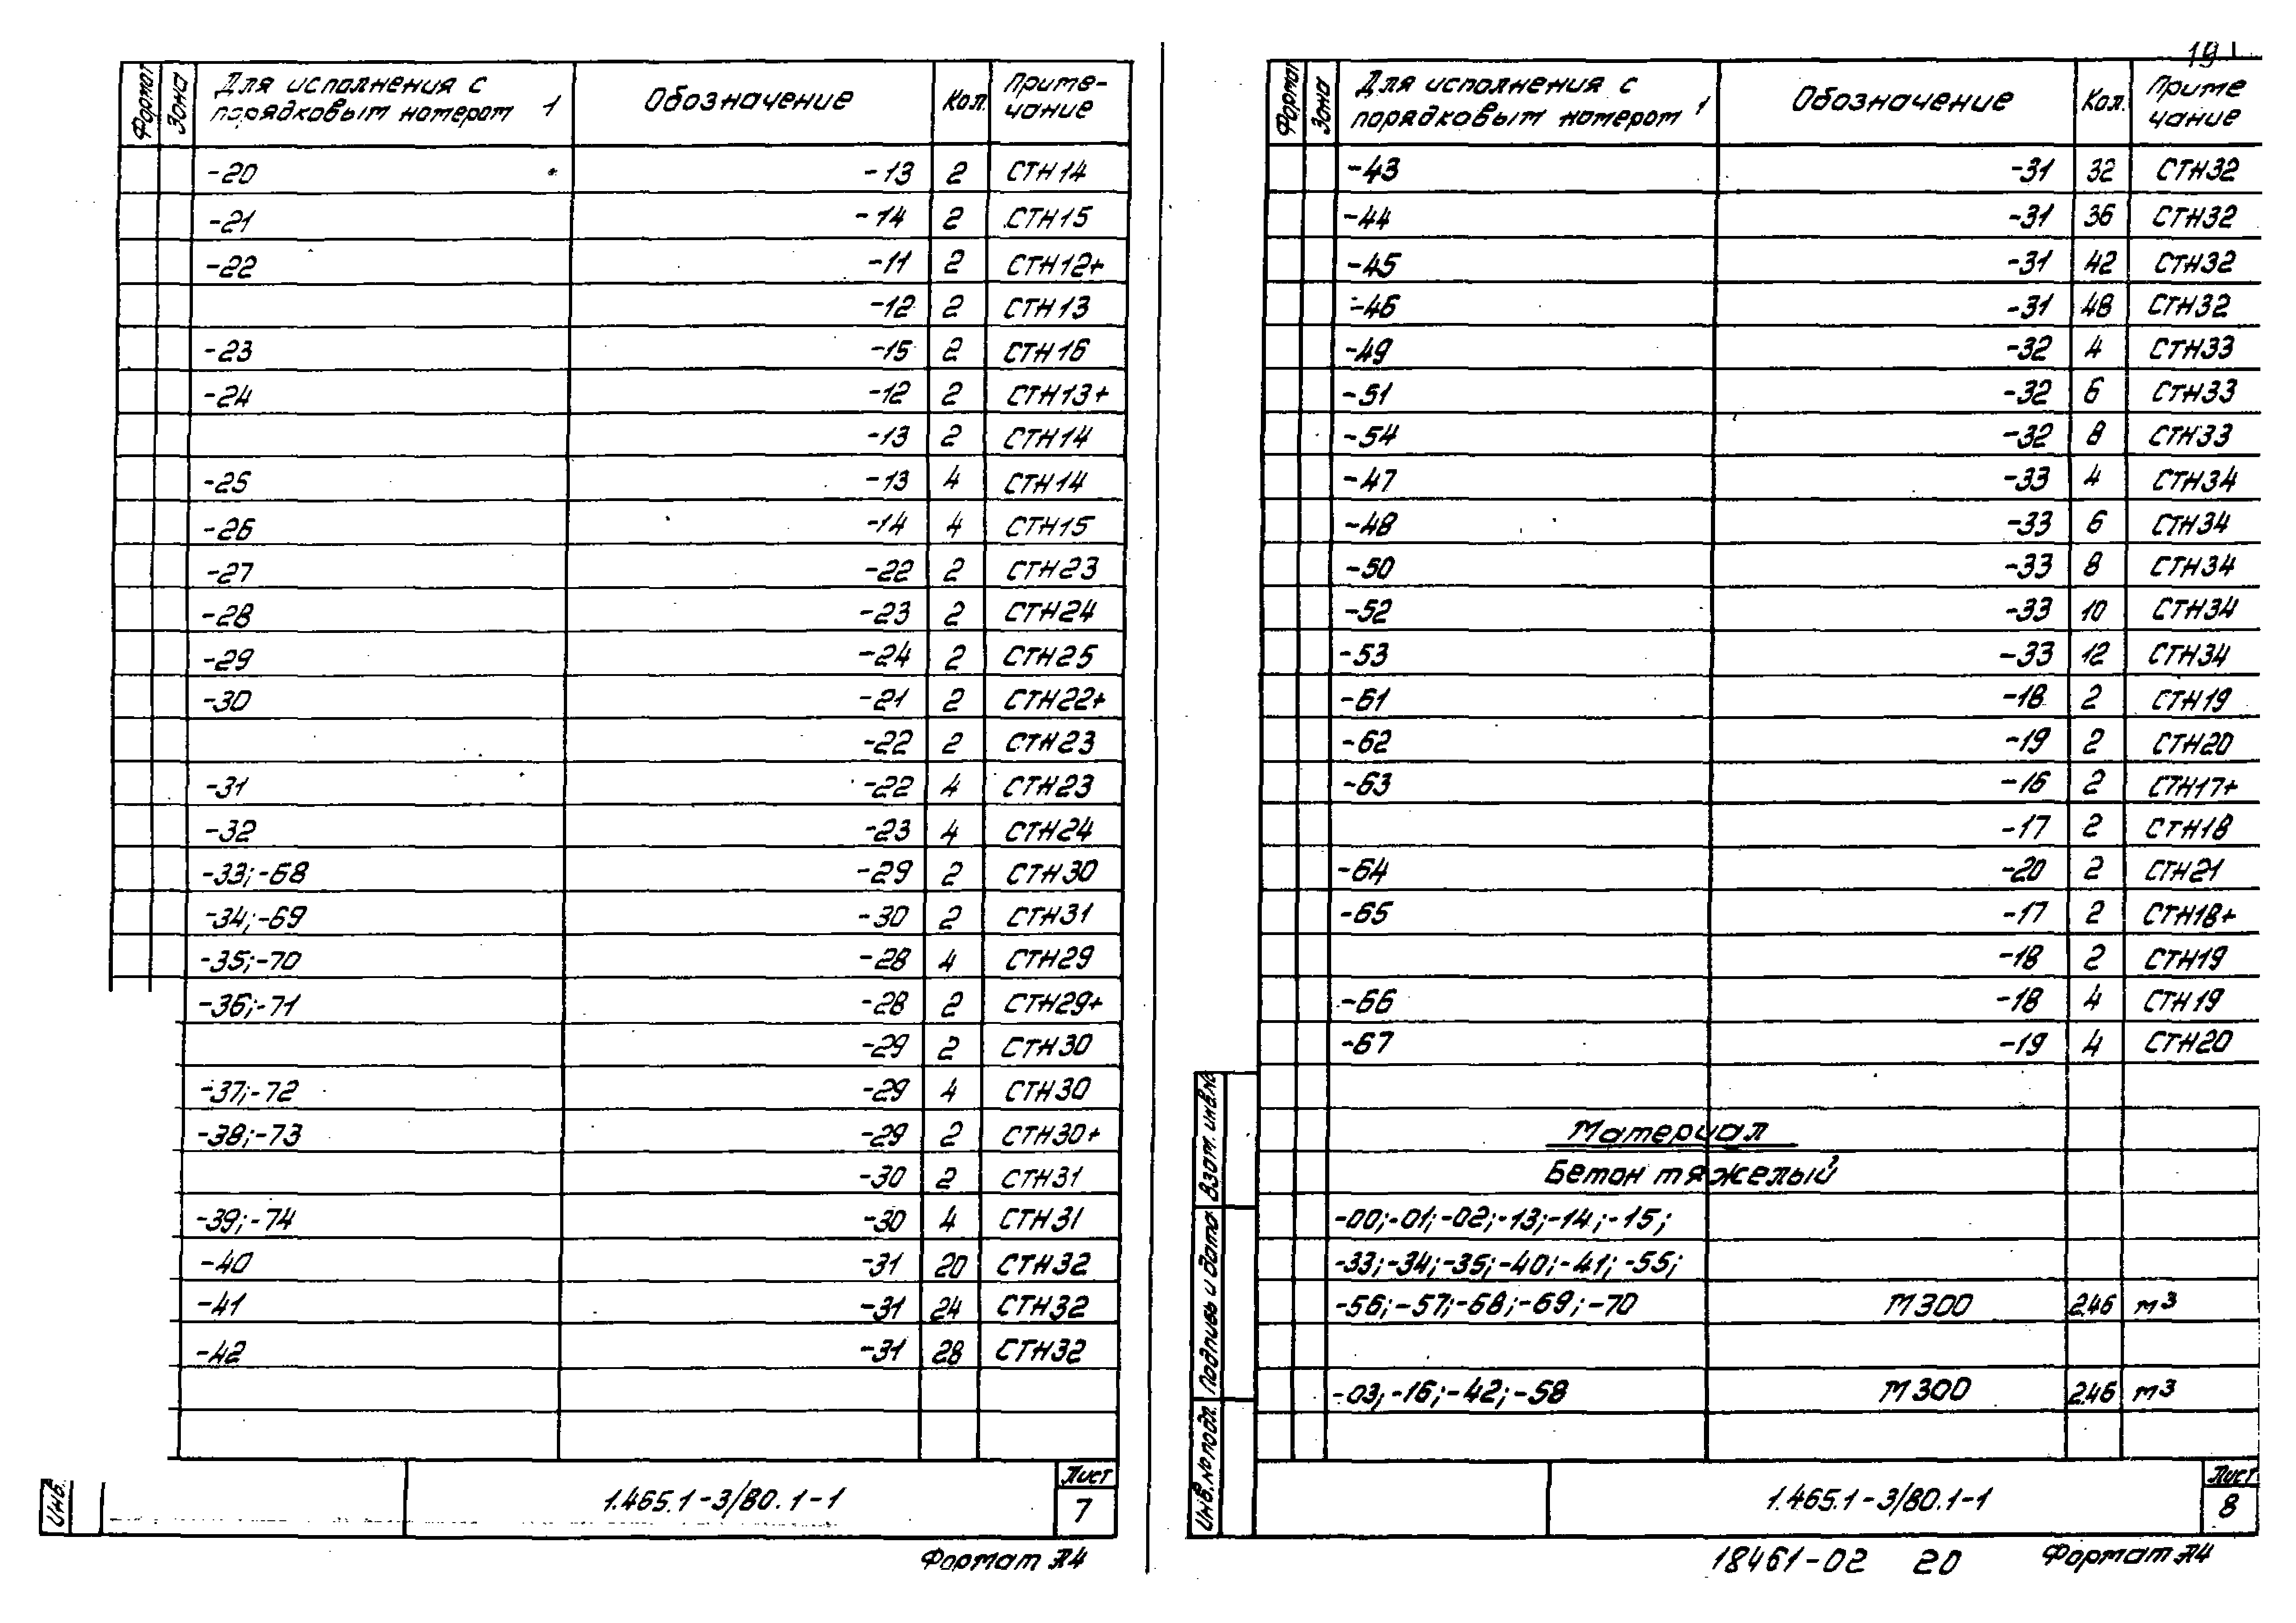 Формат Зона Для исполнения с порядковым номером 1 Обозначение Кол. Приме-чание
-20 -13 2 СТН14
-21 -14 2 СТН15
-22 -11 2 СТН12+
-12 2 СТН13
-23 -15 2 СТН16
-24 -12 2 СТН13+
-13 2 СТН14
-25 -13 4 СТН14
-26 -14 4 СТН15
-27 -22 2 СТН23
-28 -23 2 СТН24
-29 -24 2 СТН25
-30 -21 2 СТН22+
-22 2 СТН23
-31 -22 4 СТН23
-32 -23 4 СТН24
-33;-68 -29 2 СТН30
-34;-69 -30 2 СТН31
-35;-70 -28 4 СТН29
-36;-71 -28 2 СТН29+
-29 2 СТН30
-37;-72 -29 4 СТН30
-38;-73 -29 2 СТН30+
-30 2 СТН31
-39;-74 -30 4 СТН31
-40 -31 20 СТН32
-41 -31 24 СТН32
-42 -31 28 СТН32
Инв.
1.465.1-3/80.1-1
Лист
7
Формат А4
19
Формат Зона Для исполнения с порядковым номером 1 Обозначение Кол. Приме чание
-43 -31 32 СТН32
-44 -31 36 СТН32
-45 -31 42 СТН32
-46 -31 48 СТН32
-49 -32 4 СТН33
-51 -32 6 СТН33
-54 -32 8 СТН33
-47 -33 4 СТН34
-48 -33 6 СТН34
-50 -33 8 СТН34
-52 -33 10 СТН34
-53 -33 12 СТН34
-61 -18 2 СТН19
-62 -19 2 СТН20
-63 -16 2 СТН17+
-17 2 СТН18
-64 -20 2 СТН21
-65 -17 2 СТН18+
-18 2 СТН19
-66 -18 4 СТН19
-67 -19 4 СТН20
Материал
Бетон тяжелый
-00;-01;-02;-13;-14;-15;
-33;-34;-35;-40;-41;-55;
-56;-57;-68;-69;-70 М300 2.46 м³
-03;-16;-42;-58 М300 2.46 м³
Взам. инв.№
Подпись и дата
Инв.№ подл.
1.465.1-3/80.1-1
Лист
8
18461-02 20 Формат А4